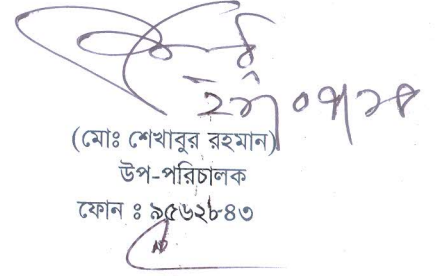 (মোঃ শেখাবুর রহমান)
উপ-পরিচালক
ফোন ঃ ৯৫৬২৮৪৩